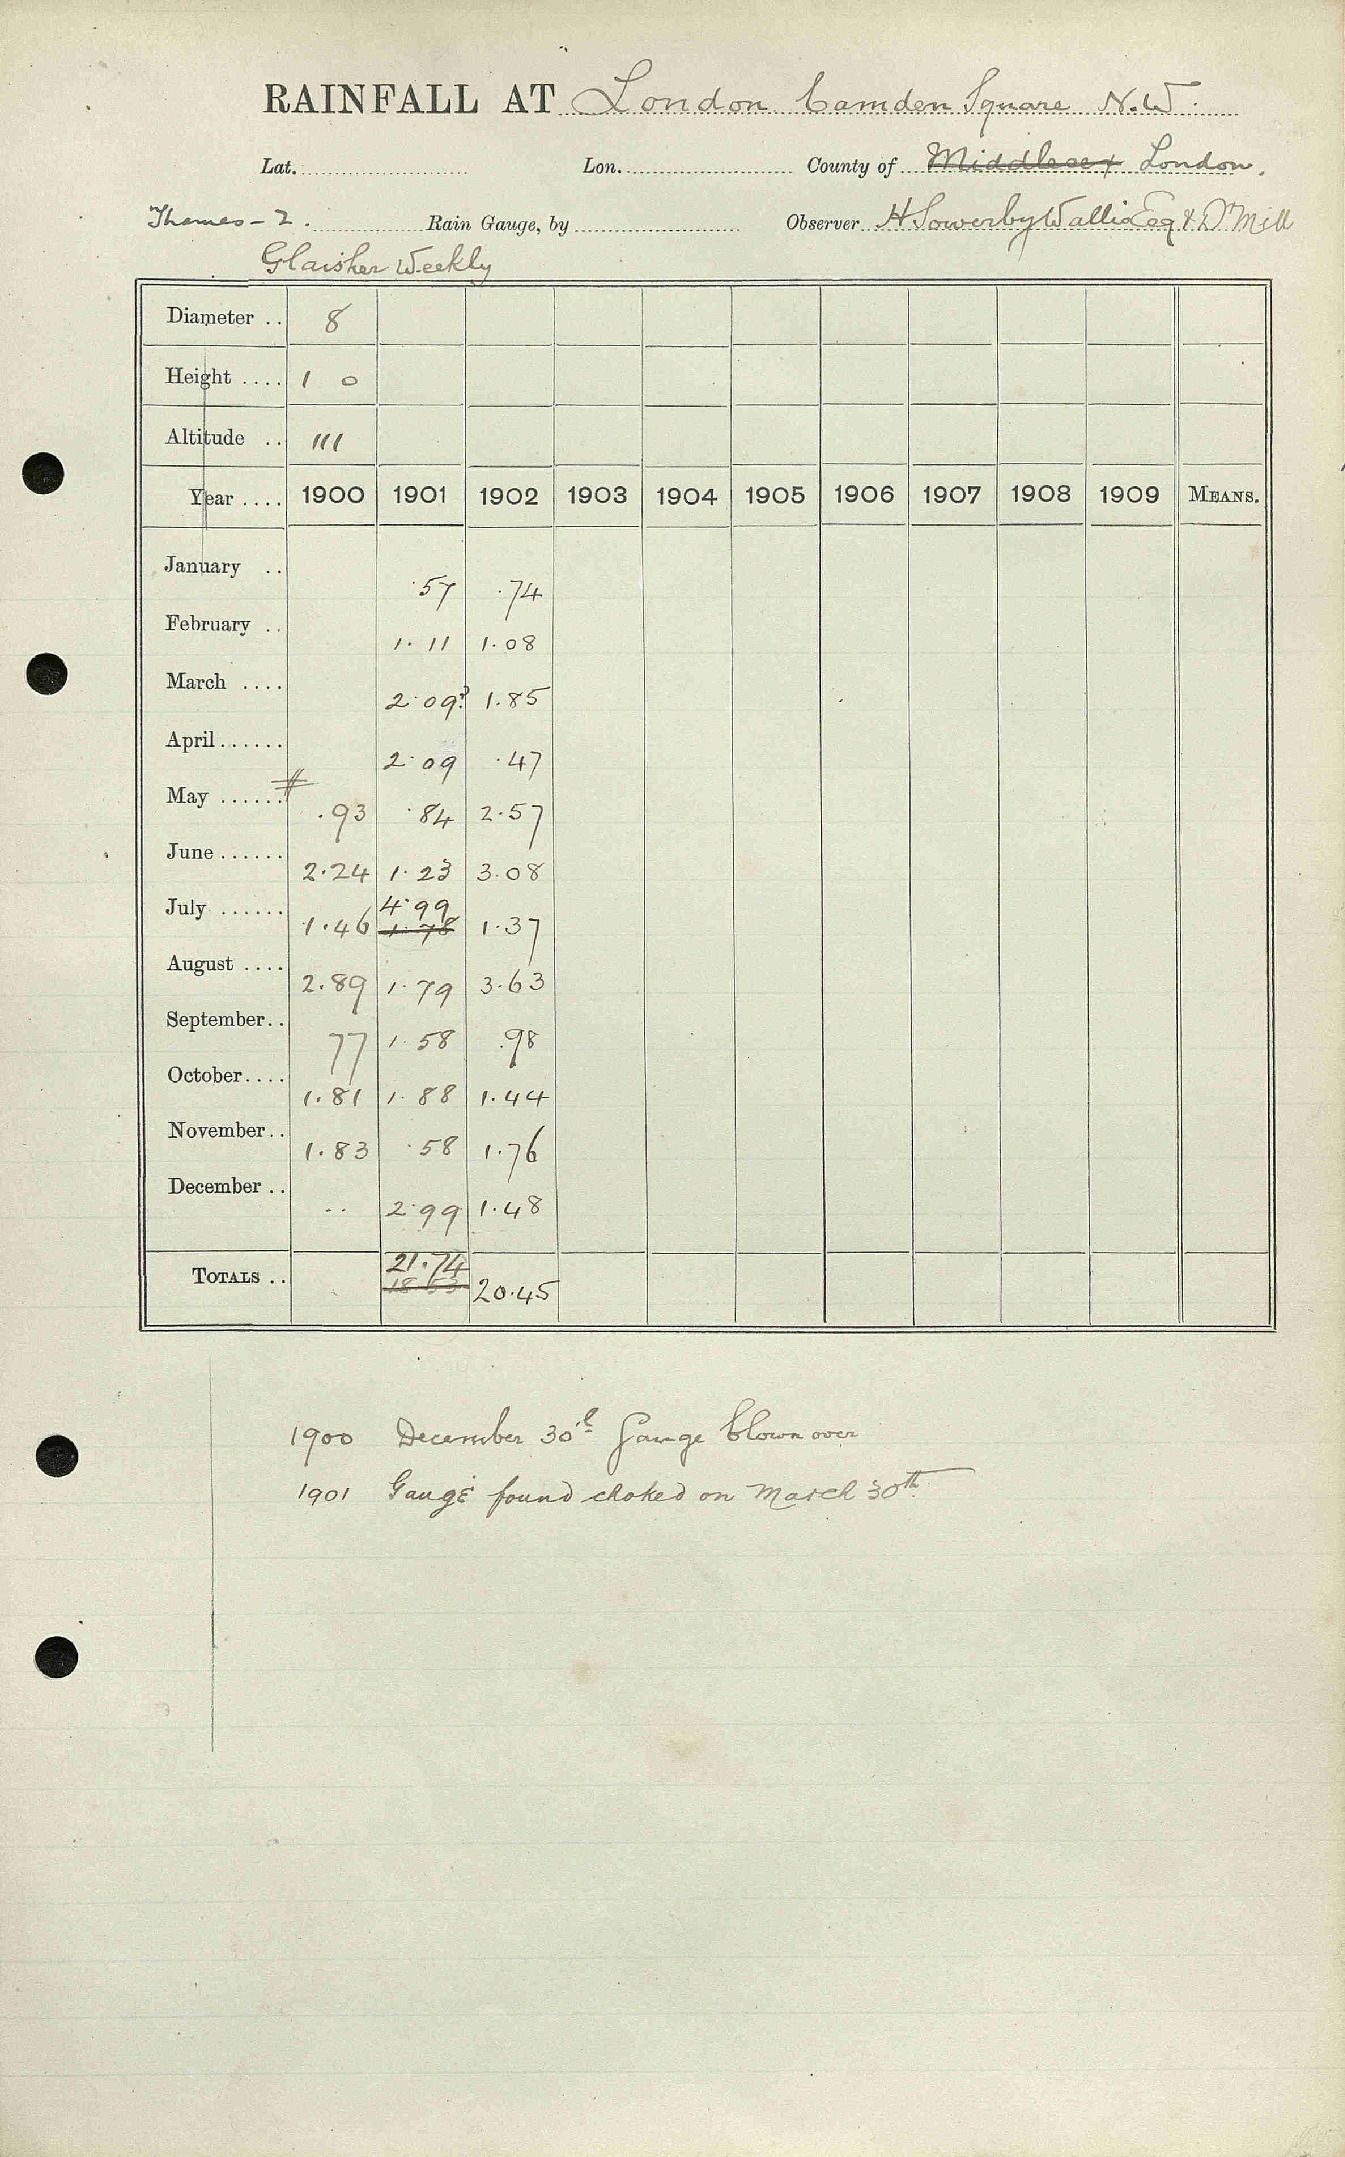 RAINFALL AT London Camden Square N.W.
Lat. Lon. County of Middlesex London.
Thames - 2. Rain Gauge, by Observer H Sowerby Wallis Esq & Dr Mill
Glaisher Weekly
Diameter .. 8
Height .... 1 0
Altitude .. 111
Year .... 1900 1901 1902 1903 1904 1905 1906 1907 1908 1909 MEANS.
January .. .57 .74
February .. 1.11 1.08
March .... 2.09? 1.85
April...... 2.09 .47
May ...... # .93 .84 2.57
June...... 2.24 1.23 3.08
July ...... 1.46 4.99 1.78 1.37
August .... 2.89 1.79 3.63
September.. 77 1.58 .98
October.... 1.81 1.88 1.44
November.. 1.83 .58 1.76
December .. .. 2.99 1.48
TOTALS .. 21.74 18.53 20.45
1900 December 30th Gauge blown over
1901 Gauge found choked on March 30th.